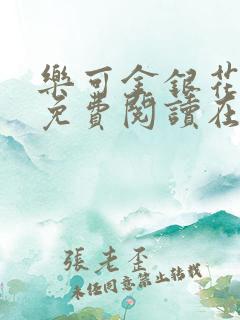 樂可金銀花
免費閱讀在
張老歪
未任同意禁止转载